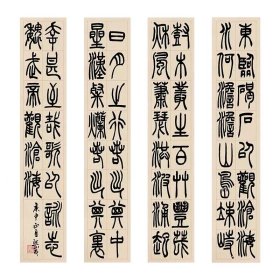 東臨碣石以觀滄海
水何澹澹山島竦峙
樹木叢生百草豐茂
秋風蕭瑟洪波湧起
日月之行若出其中
星漢粲爛若出其裏
幸甚至哉歌以詠志
魏武帝觀滄海